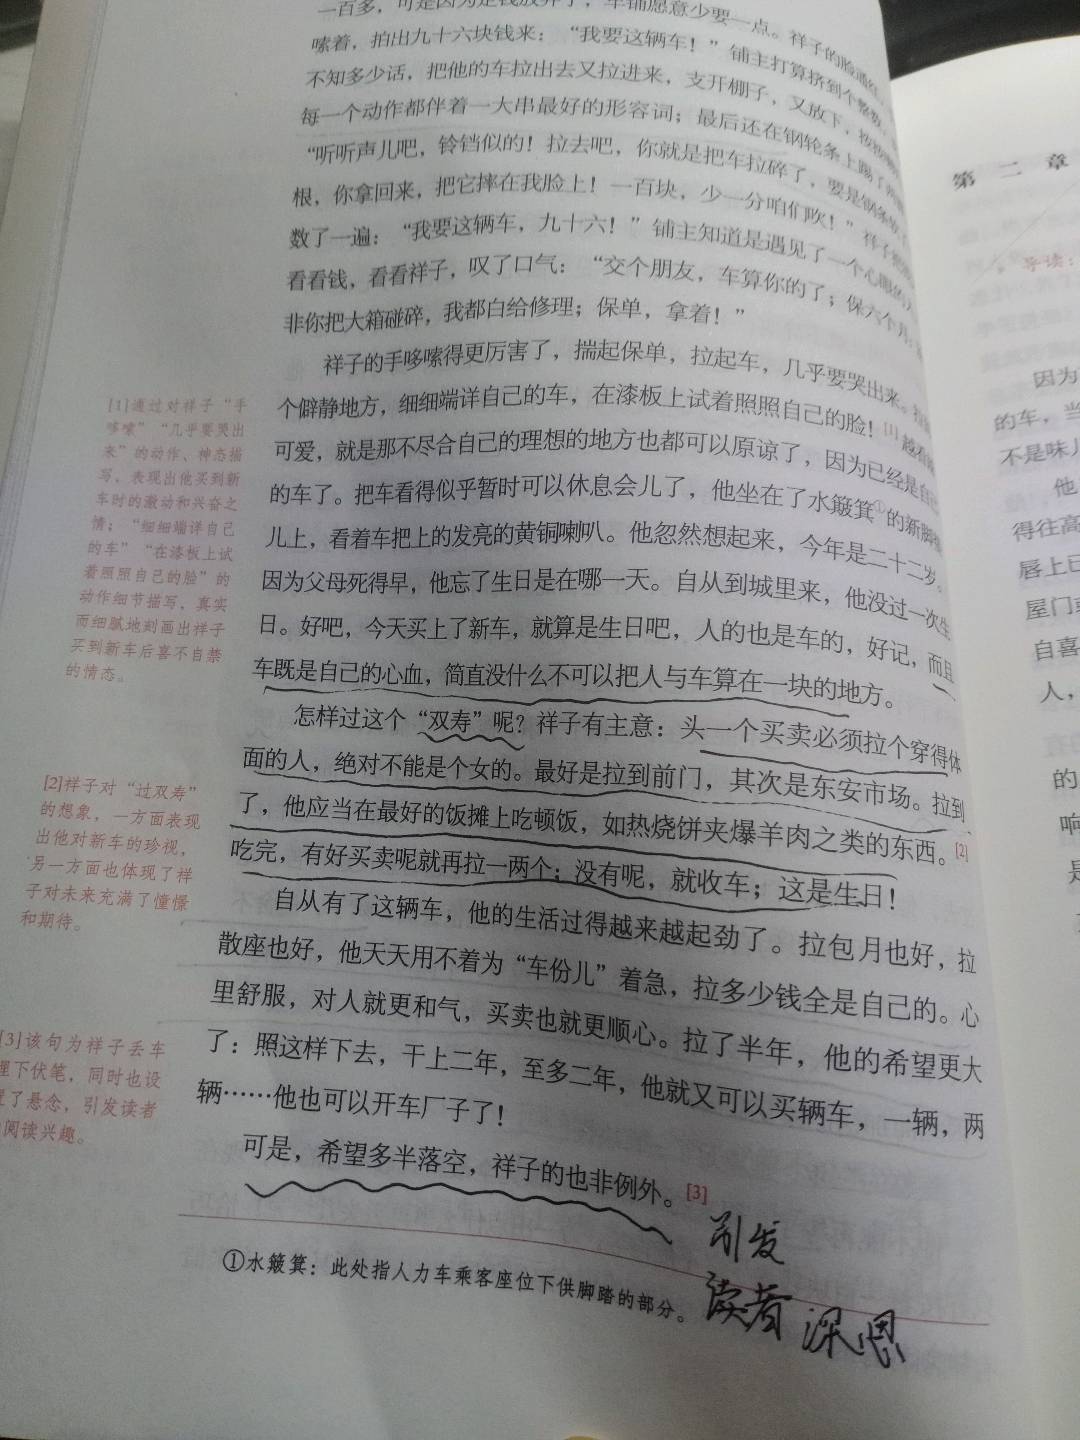 一百多，可是因为定钱放弃了，车铺愿意少要一点。祥子的脸通红，
嗦着，拍出九十六块钱来：“我要这辆车！”铺主打算挤到个整数，
不知多少话，把他的车拉出去又拉进来，支开棚子，又放下，按按
每一个动作都伴着一大串最好的形容词；最后还在钢轮条上踢了两
“听听声儿吧，铃铛似的！拉去吧，你就是把车拉碎了，要是钢条软
根，你拿回来，把它摔在我脸上！一百块，少一分咱们吹！”祥子
数了一遍：“我要这辆车，九十六！”铺主知道是遇见了一个心眼的人
看看钱，看看祥子，叹了口气：“交个朋友，车算你的了；保六个月：
非你把大箱碰碎，我都白给修理；保单，拿着！”
祥子的手哆嗦得更厉害了，揣起保单，拉起车，几乎要哭出来。
个僻静地方，细细端详自己的车，在漆板上试着照照自己的脸！[1]越看
可爱，就是那不尽合自己的理想的地方也都可以原谅了，因为已经是自己
的车了。把车看得似乎暂时可以休息会儿了，他坐在了水簸箕①的新脚
儿上，看着车把上的发亮的黄铜喇叭。他忽然想起来，今年是二十二岁。
因为父母死得早，他忘了生日是在哪一天。自从到城里来，他没过一次生
日。好吧，今天买上了新车，就算是生日吧，人的也是车的，好记，而且
车既是自己的心血，简直没什么不可以把人与车算在一块的地方。
怎样过这个“双寿”呢？祥子有主意：头一个买卖必须拉个穿得体
面的人，绝对不能是个女的。最好是拉到前门，其次是东安市场。拉到
了，他应当在最好的饭摊上吃顿饭，如热烧饼夹爆羊肉之类的东西。[2]
吃完，有好买卖呢就再拉一两个；没有呢，就收车；这是生日！
自从有了这辆车，他的生活过得越来越起劲了。拉包月也好，拉
散座也好，他天天用不着为“车份儿”着急，拉多少钱全是自己的。心
里舒服，对人就更和气，买卖也就更顺心。拉了半年，他的希望更大
了：照这样下去，干上二年，至多二年，他就又可以买辆车，一辆，两
辆……他也可以开车厂子了！
可是，希望多半落空，祥子的也非例外。[3]
引发
读者 深思
①水簸箕：此处指人力车乘客座位下供脚踏的部分。
[1]通过对祥子“手
哆嗦”“几乎要哭出
来”的动作、神态描
写，表现出他买到新
车时的激动和兴奋之
情；“细细端详自己
的车”“在漆板上试
着照照自己的脸”的
动作细节描写，真实
而细腻地刻画出祥子
买到新车后喜不自禁
的情态。
[2]祥子对“过双寿”
的想象，一方面表现
出他对新车的珍视，
另一方面也体现了祥
子对未来充满了憧憬
和期待。
[3]该句为祥子丢车
埋下伏笔，同时也设
置了悬念，引发读者
阅读兴趣。
第二章
导读：
因为
的车，当
不是味儿
他
得往高
唇上已
屋门
自喜
人，
的
响
是